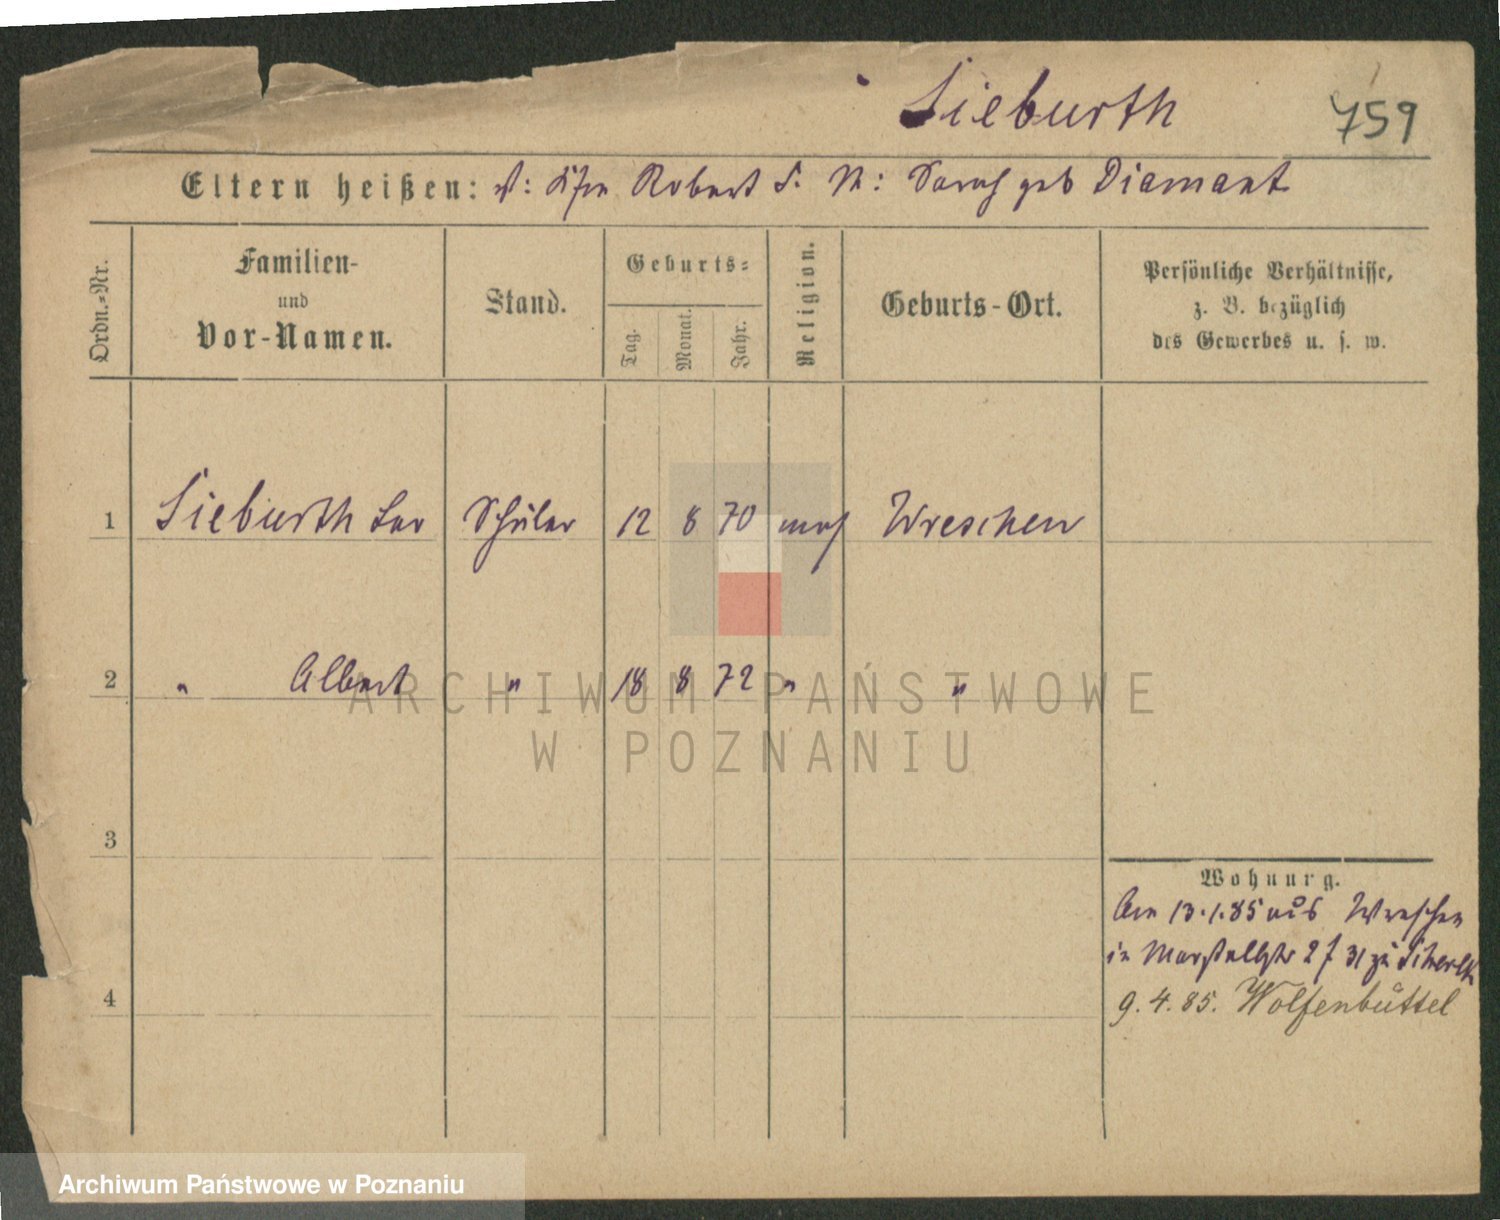 Sieburth 759
Eltern heißen: V: Kfm Robert S. M: Sarah geb Diamant
Ordn.=Nr.
Familien-
und
Vor-Namen.
Stand.
Geburts=
Tag.
Monat.
Jahr.
Religion.
Geburts-Ort.
Persönliche Verhältnisse,
z. B. bezüglich
des Gewerbes u. s. w.
1 Sieburth Schüler 12 8 70 mos Wreschen
2 " Albert " 18 8 72 " "
3
Wohnung.
Am 13.1.85 aus Wreschen
in Marstallstr 2 f 31 zu
4
9.4.85. Wolfenbüttel
ARCHIWUM PAŃSTWOWE
W POZNANIU
Archiwum Państwowe w Poznaniu